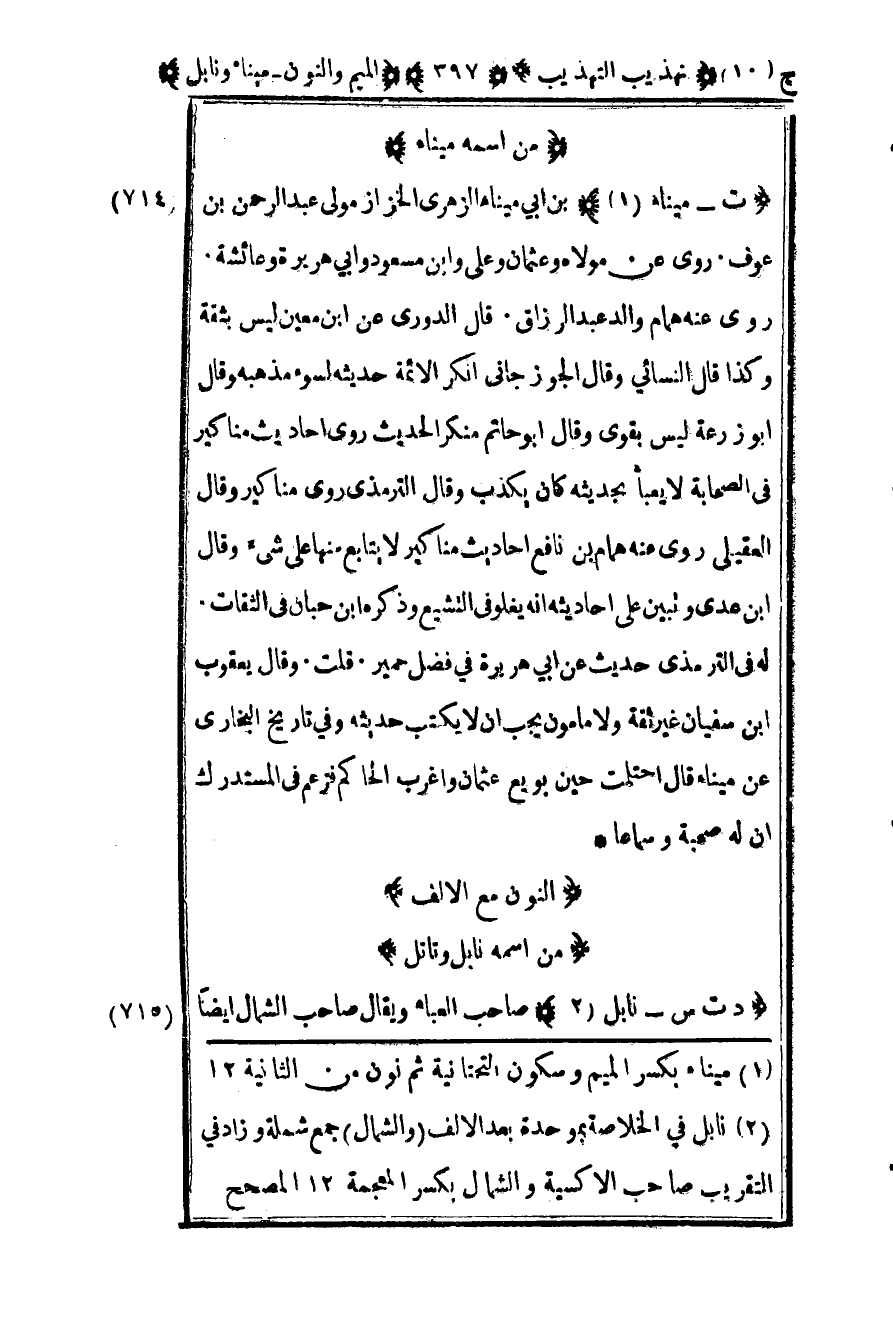 ج (١٠) ﴿ تهذيب التهذيب ﴾ ﴿ ٣٩٧ ﴾ ﴿ الميم والنون - ميناء ونابل ﴾
﴿ من اسمه ميناء ﴾
﴿ ت ــ ميناء (١) ﴾ بن ابي ميناء الزهرى الخزاز مولى عبدالرحمن بن (٧١٤)
عوف . روى عن مولاه وعثمان وعلى وابن مسعود وابي هريرة وعائشة .
روى عنه همام والد عبدالرزاق . قال الدورى عن ابن معين ليس بثقة
وكذا قال النسائي وقال الجوزجانى انكر الائمة حديثه لسوء مذهبه وقال
ابو زرعة ليس بقوى وقال ابوحاتم منكر الحديث روى احاديث مناكير
فى الصحابة لا يعبأ بحديثه كان يكذب وقال الترمذى روى مناكير وقال
العقيلى روى عنه همام بن نافع احاديث مناكير لا يتابع منها على شىء وقال
ابن عدى وتبين على احاديثه انه يغلو فى التشيع وذكره ابن حبان فى الثقات .
له فى الترمذى حديث عن ابي هريرة في فضل حمير . قلت . وقال يعقوب
ابن سفيان غير ثقة ولا مامون يجب ان لا يكتب حديثه وفي تاريخ البخارى
عن ميناء قال احتلمت حين بويع عثمان واغرب الحاكم فزعم فى المستدرك
ان له صحبة وسماعا *
﴿ النون مع الالف ﴾
﴿ من اسمه نابل وناتل ﴾
﴿ د ت س ــ نابل (٢ ﴾ صاحب العباء ويقال صاحب الشمال ايضًا (٧١٥)
(١) ميناء بكسر الميم وسكون التحتانية ثم نون من الثانية ١٢
(٢) نابل في الخلاصة بموحدة بعد الالف (والشمال) جمع شملة وزاد في
التقريب صاحب الاكسية والشمال بكسر المعجمة ١٢ المصحح